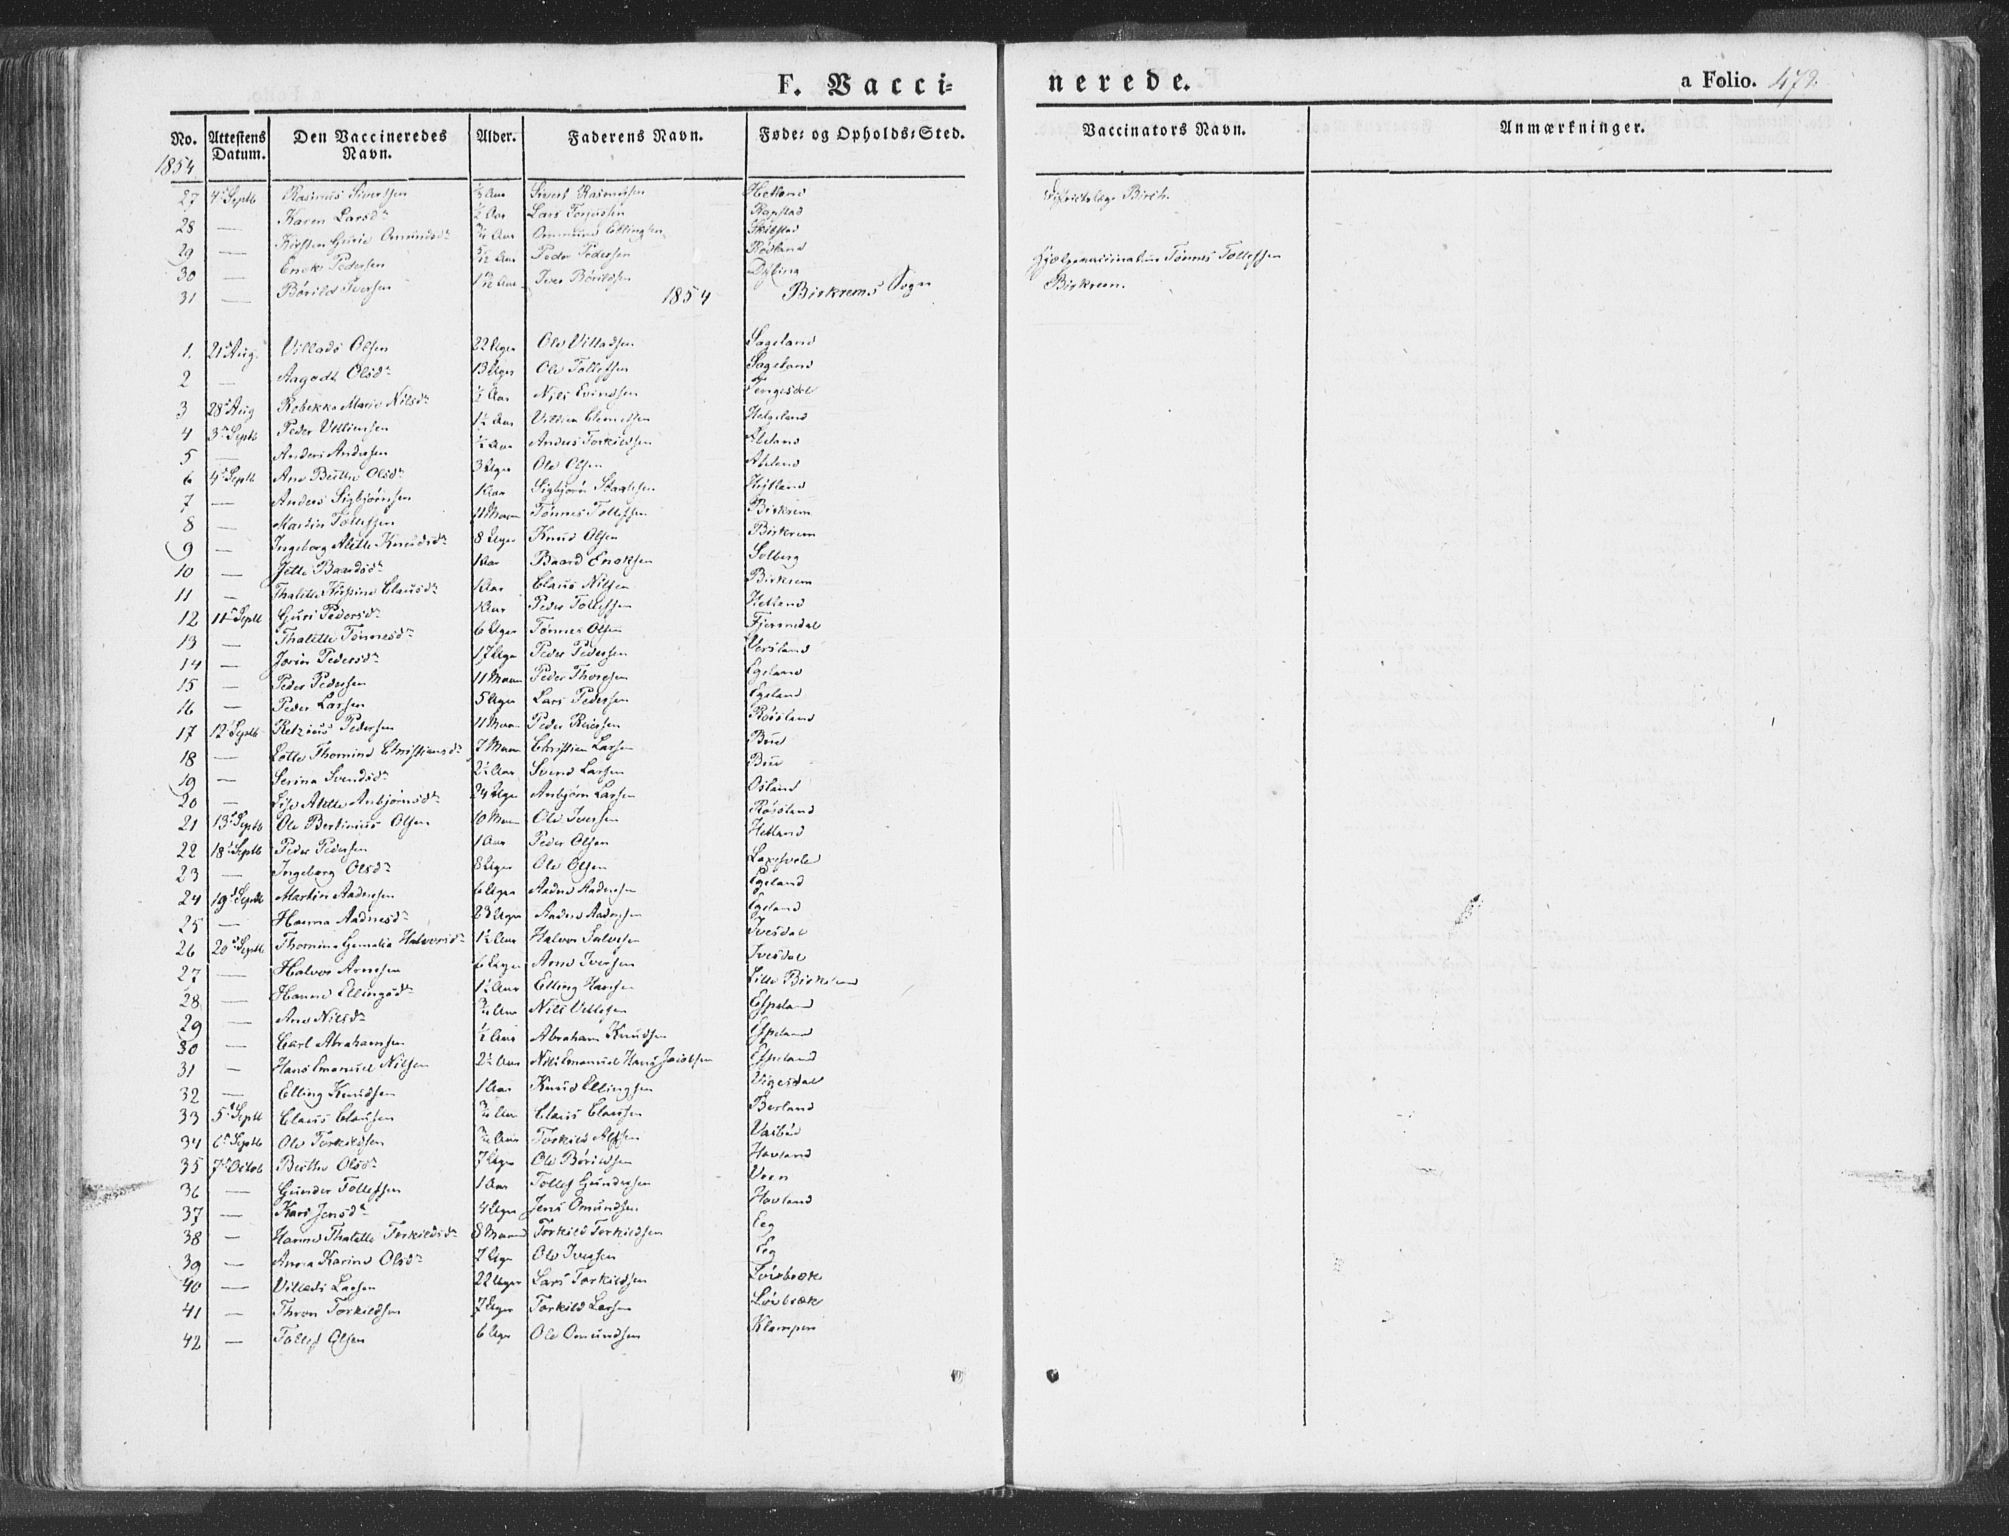 F. Vacci=
nerede.
a Folio. 472
No. Attestens Datum. Den Vaccineredes Navn. Alder. Faderens Navn. Føde= og Opholds=Sted. Vaccinators Navn. Anmærkninger.
1854
27 4 Septb Rasmus Sivertsen Aar Sivert Rasmussen Hetland Birch.
28 — Karen Larsdr ½ Aar Lars Rapstad
29 — Kirsten Omundsdr Aar Ommund Ellingsen Skibstad
30 — Enok Pedersen Aar Peder Pedersen Røsland Tønnes Tollefsen
31 — Børild Iversen Aar Iver Børildsen Dybing Birkrem.
1854 Birkrems Sogn
1. 21 Aug. Villads Olsen 22 Uger Ole Villadsen Sageland
2 — Aagodt Olsdr 13 Uger Ole Tollefsen Sageland
3 28 Aug Rebekka Marie Nilsdr ½ Aar Nils Evindsen Tengesdal
4 3 Septb Peder Villumsen 1½ Aar Helgeland
5 — Anders Andersen ½ Aar Anders Torkildsen
6 4 Septb Ane Berthe Olsdr 3 Uger Ole Olsen
7 — Anders Sigbjørnsen 1 Aar Sigbjørn
8 — Martin Tollefsen 11 Maan Tønnes Tollefsen Birkrem
9 — Ingeborg Alette Knudsdr 8 Uger Knud Olsen Birkrem
10 — Jette Baardsdr 1 Aar Baard Enoksen Solberg
11 — Thalette Clausdr 1 Aar Claus Nilsen Birkrem
12 11 Septb Guri Pedersdr 1 Aar Peder Tollefsen Hetland
13 — Thalette Tønnesdr 6 Uger Tønnes Olsen Fjermedal
14 — Jorine Pedersdr 17 Uger Peder Pedersen
15 — Peder Pedersen 11 Maan Peder Thorsen Egeland
16 — Peder Larsen 5 Uger Lars Pedersen Egeland
17 12 Septb Retzius Pedersen 11 Maan Peder Reiersen Røisland
18 — Lotte Thomine Christiansdr 7 Maan Christian Larsen Bue
19 — Serina Svendsdr 2½ Aar Svend Larsen Bue
20 — Lise Alette Anbjørnsdr 24 Uger Anbjørn Larsen Osland
21 13 Septb Ole Bertinius Olsen 10 Maan Ole Iversen Røisland
22 18 Septb Peder Pedersen 1 Aar Peder Olsen Hetland
23 — Ingeborg Olsdr 8 Uger Ole Olsen Laxesvele
24 19 Septb Martin Aadnesen 6 Uger Aadne Aadnesen Egeland
25 — Hanna Aadnesdr 23 Uger Aadne Aadnesen Egeland
26 20 Septb Thomine Halvorsdr 1½ Aar Halvor Salvesen Ivesdal
27 — Halvor Arnesen 6 Uger Arne Iversen Ivesdal
28 — Hanne Ellingsdr 1½ Aar Elling Hansen Lille Birkeland
29 — Ane Nilsdr Aar Nils Espeland
30 — Carl Abrahamsen ½ Aar Abraham Knudsen Espeland
31 — Hans Emanuel Nilsen 2½ Aar Nils Emanuel Hans Jacobsen Espeland
32 — Elling Knudsen 1 Aar Knud Ellingsen Vigesdal
33 5 Septb Claus Clausen Aar Claus Clausen Berland
34 6 Septb Ole Torkildsen Aar Torkild
35 7 Octob Berthe Olsdr 7 Uger Ole Børildsen Hovland
36 — Gunder Tollefsen 1 Aar Tollef Gundersen Veen
37 — Kari Jensdr 4 Uger Jens Omundsen Hovland
38 — Hanne Thalette Torkildsdr 8 Maaned Torkild Torkildsen Eeg
39 — Anna Karine Olsdr 7 Uger Ole Iversen Eeg
40 — Villads Larsen 22 Uger Lars Torkildsen Løvbræk
41 — Thron Torkildsen 7 Uger Torkild Larsen Løvbræk
42 — Tollef Olsen 6 Uger Ole Omundsen Klampen